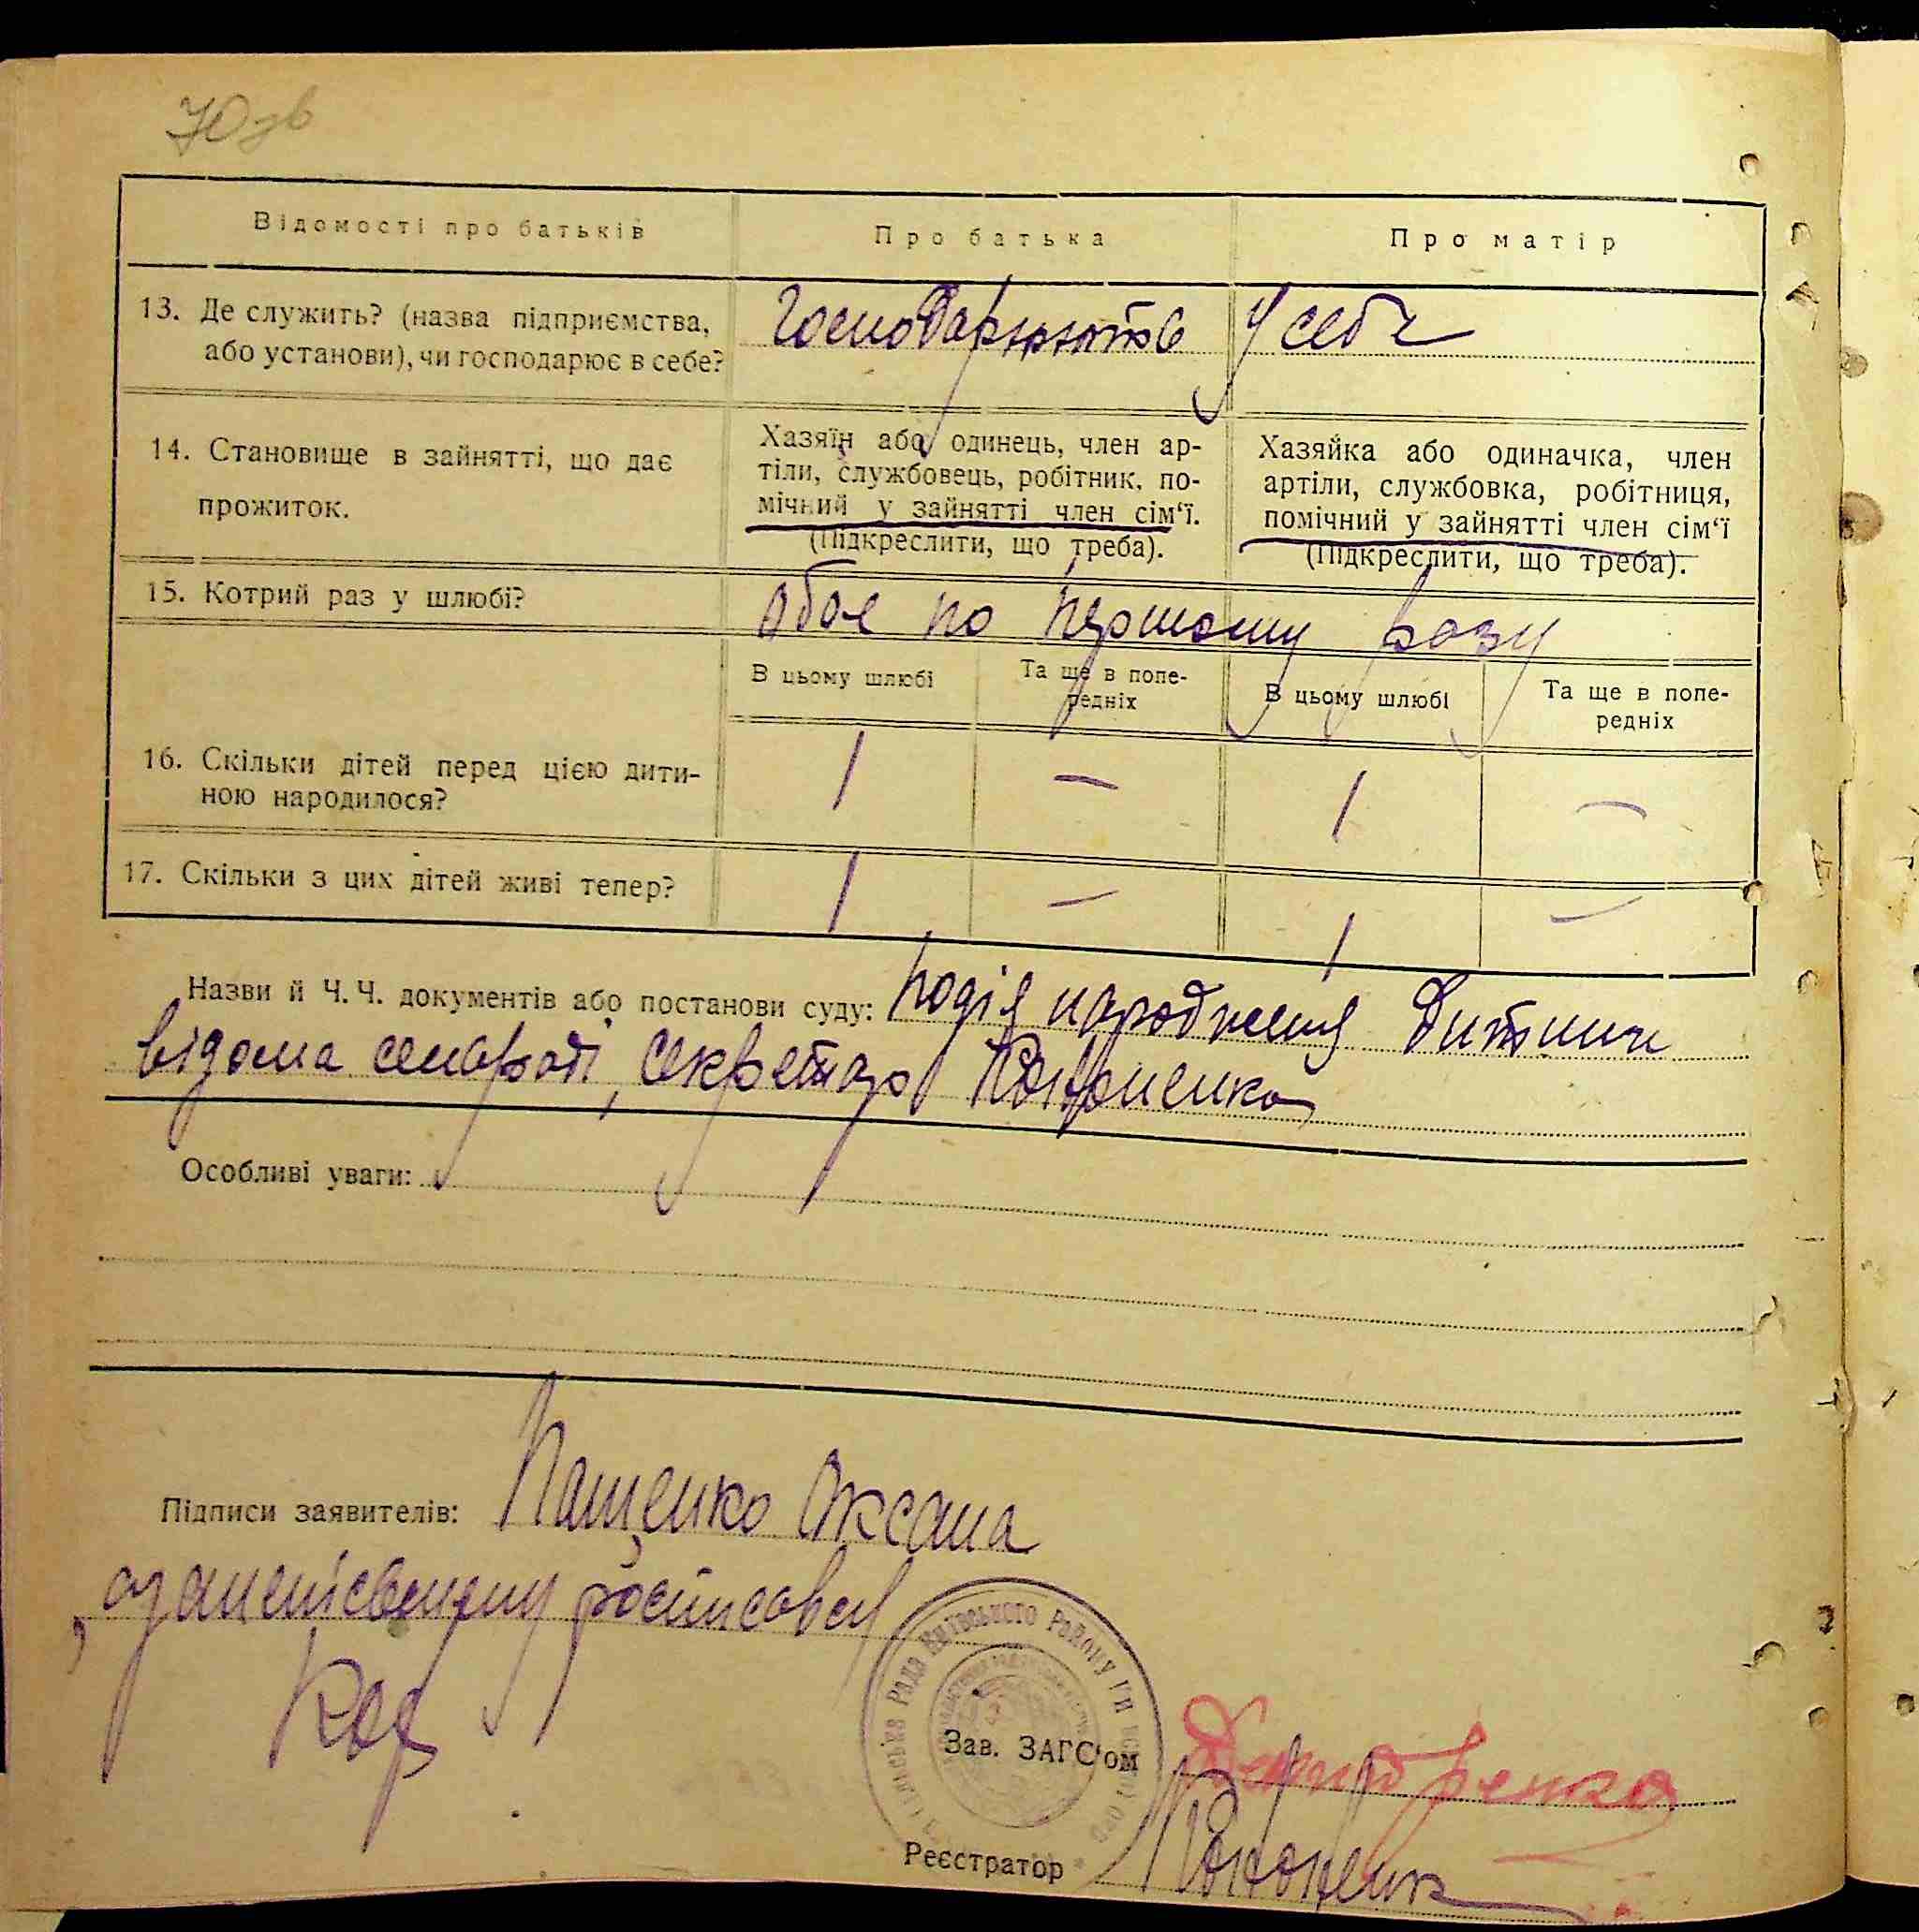 70 зв
Відомості про батьків
Про батька
Про матір
13. Де служить? (назва підприємства,
або установи), чи господарює в себе?
Господарюють у себе
14. Становище в зайнятті, що дає
прожиток.
Хазяїн або одинець, член ар-
тіли, службовець, робітник, по-
мічний у зайнятті член сім‘ї.
(Підкреслити, що треба).
Хазяйка або одиначка, член
артіли, службовка, робітниця,
помічний у зайнятті член сім‘ї
(Підкреслити, що треба).
15. Котрий раз у шлюбі?
обоє по першому разу
В цьому шлюбі
Та ще в попе-
редніх
В цьому шлюбі
Та ще в попе-
редніх
16. Скільки дітей перед цією дити-
ною народилося?
1 — 1 —
17. Скільки з цих дітей живі тепер?
1 — 1 —
Назви й Ч. Ч. документів або постанови суду: подія народження дитини
відома сельраді, секретарь Кононенко
Особливі уваги:
Підписи заявителів: Пащенко Оксана
росписався
Зав. ЗАГС‘ом
Реєстратор Кононенко
Рада Київського Району